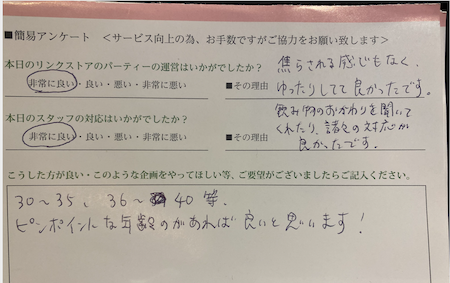 ■簡易アンケート ＜サービス向上の為、お手数ですがご協力をお願い致します＞
本日のリンクストアのパーティーの運営はいかがでしたか？
非常に良い・良い・悪い・非常に悪い ■その理由
焦らされる感じもなく、
ゆったりしてて良かったです。
本日のスタッフの対応はいかがでしたか？
非常に良い・良い・悪い・非常に悪い ■その理由
飲み物のおかわりを聞いて
くれたり、諸々の対応が
良かったです。
こうした方が良い・このような企画をやってほしい等、ご要望がございましたらご記入ください。
30～35 36～40 等、
ピンポイントな年齢のがあれば良いと思います！